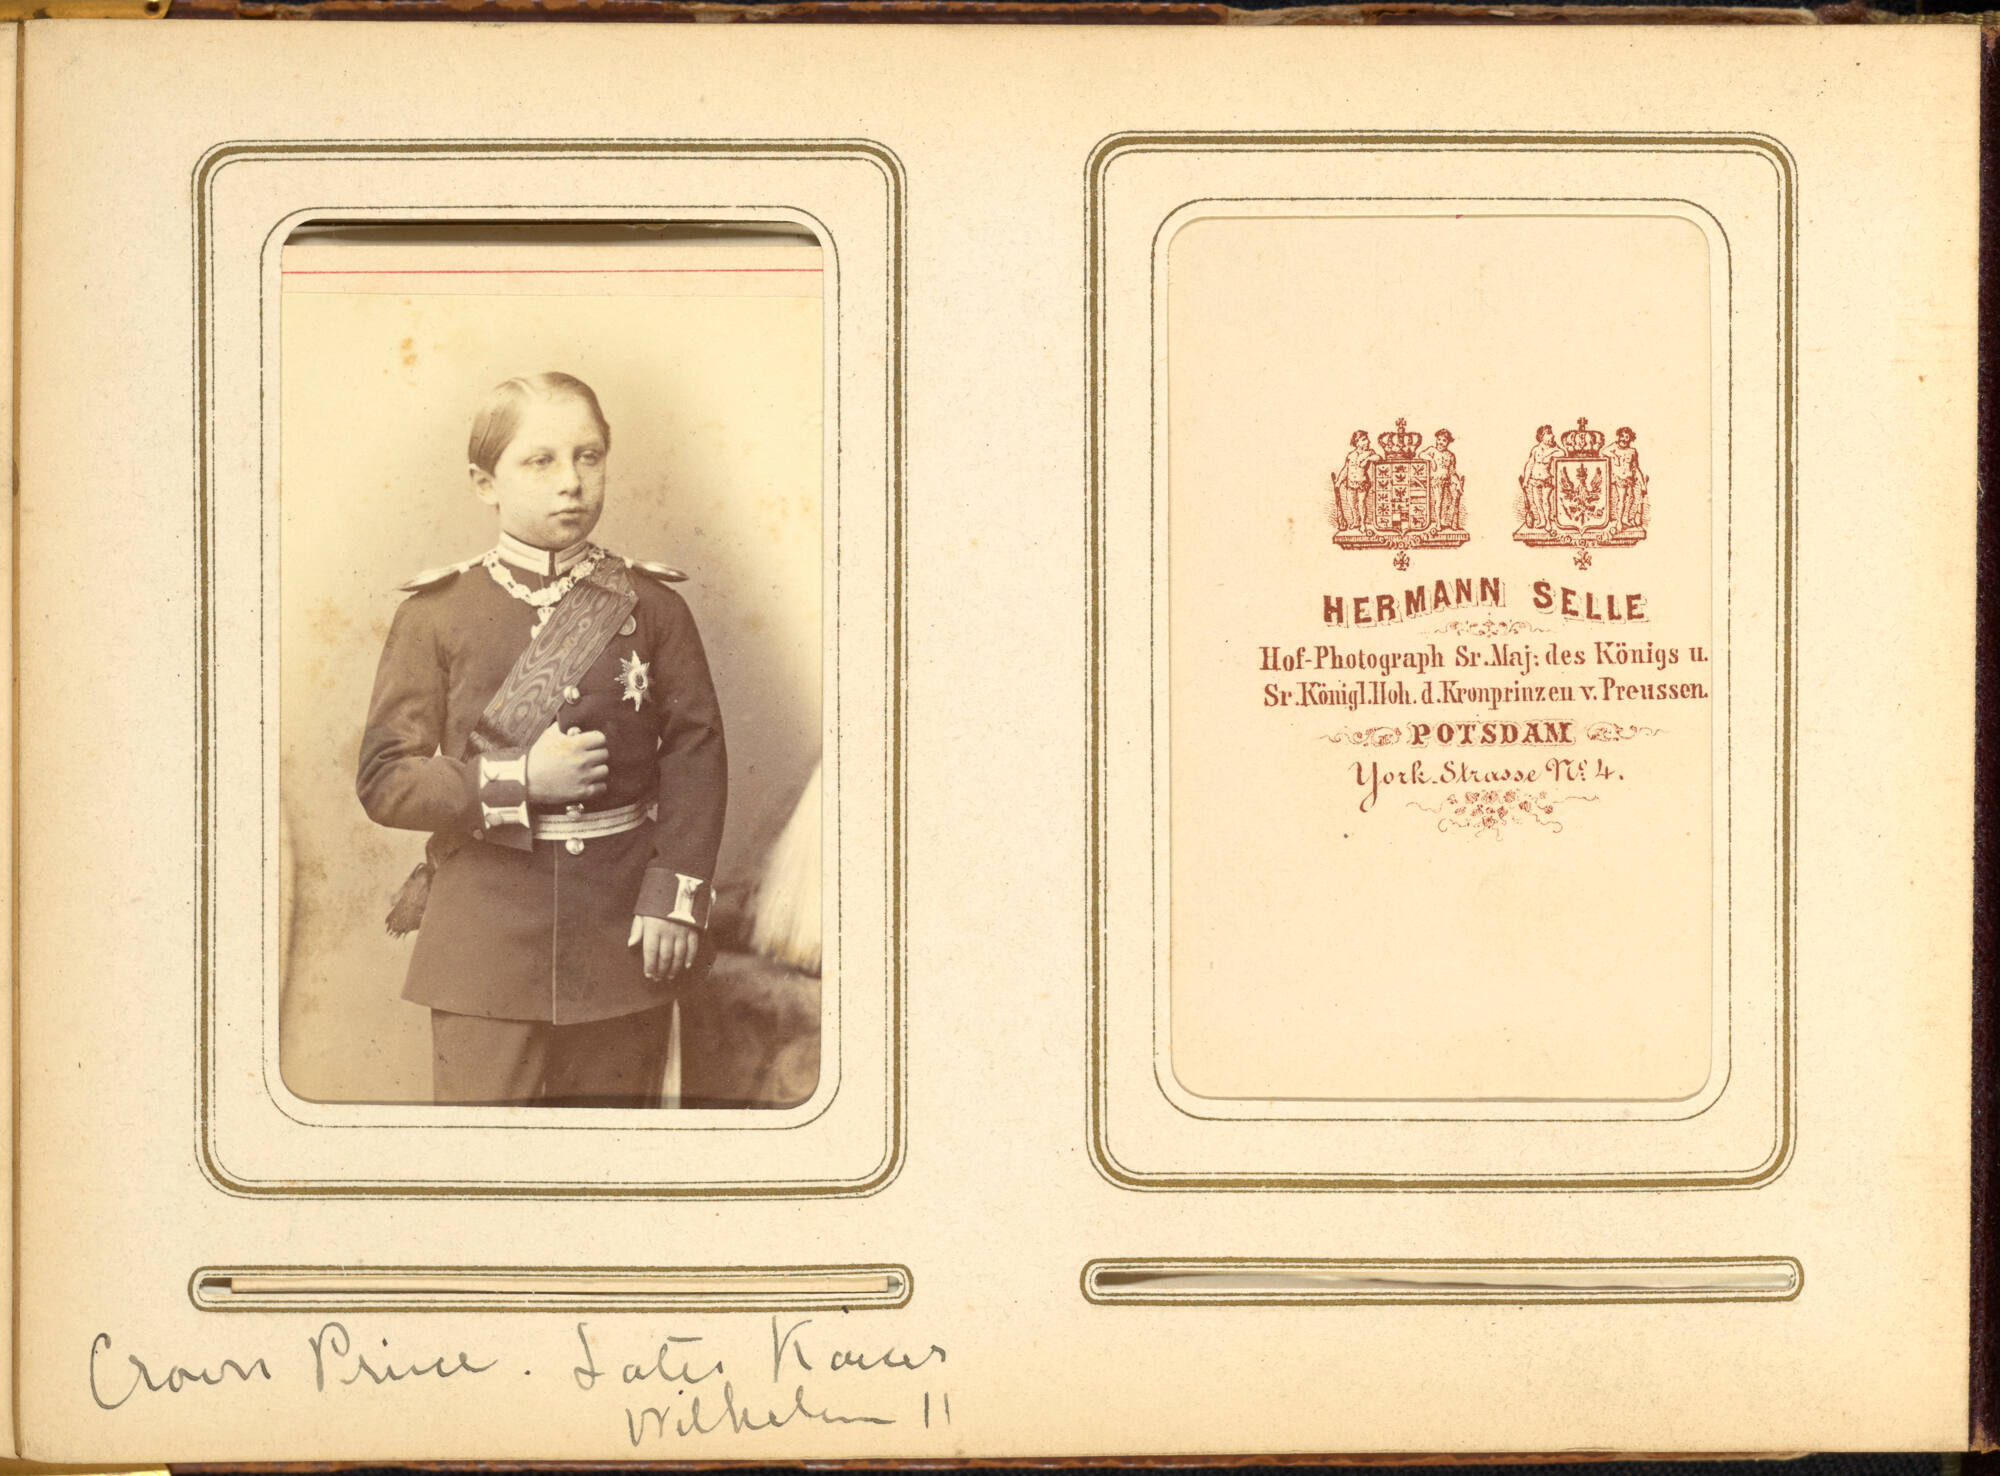 HERMANN SELLE
Hof-Photograph Sr. Maj: des Königs u.
Sr. Königl. Hoh. d. Kronprinzen v. Preussen.
POTSDAM
York-Strasse No. 4.
Crown Prince. Later Kaiser
Wilhelm II